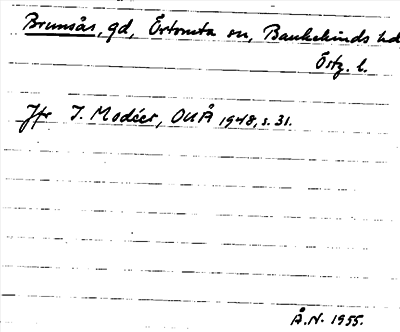 Brunsås, gd, Örtomta sn, Bankekinds hd
Östg. l.
Jfr I. Modéer, OUÅ 1948, s. 31.
Å.N. 1955.